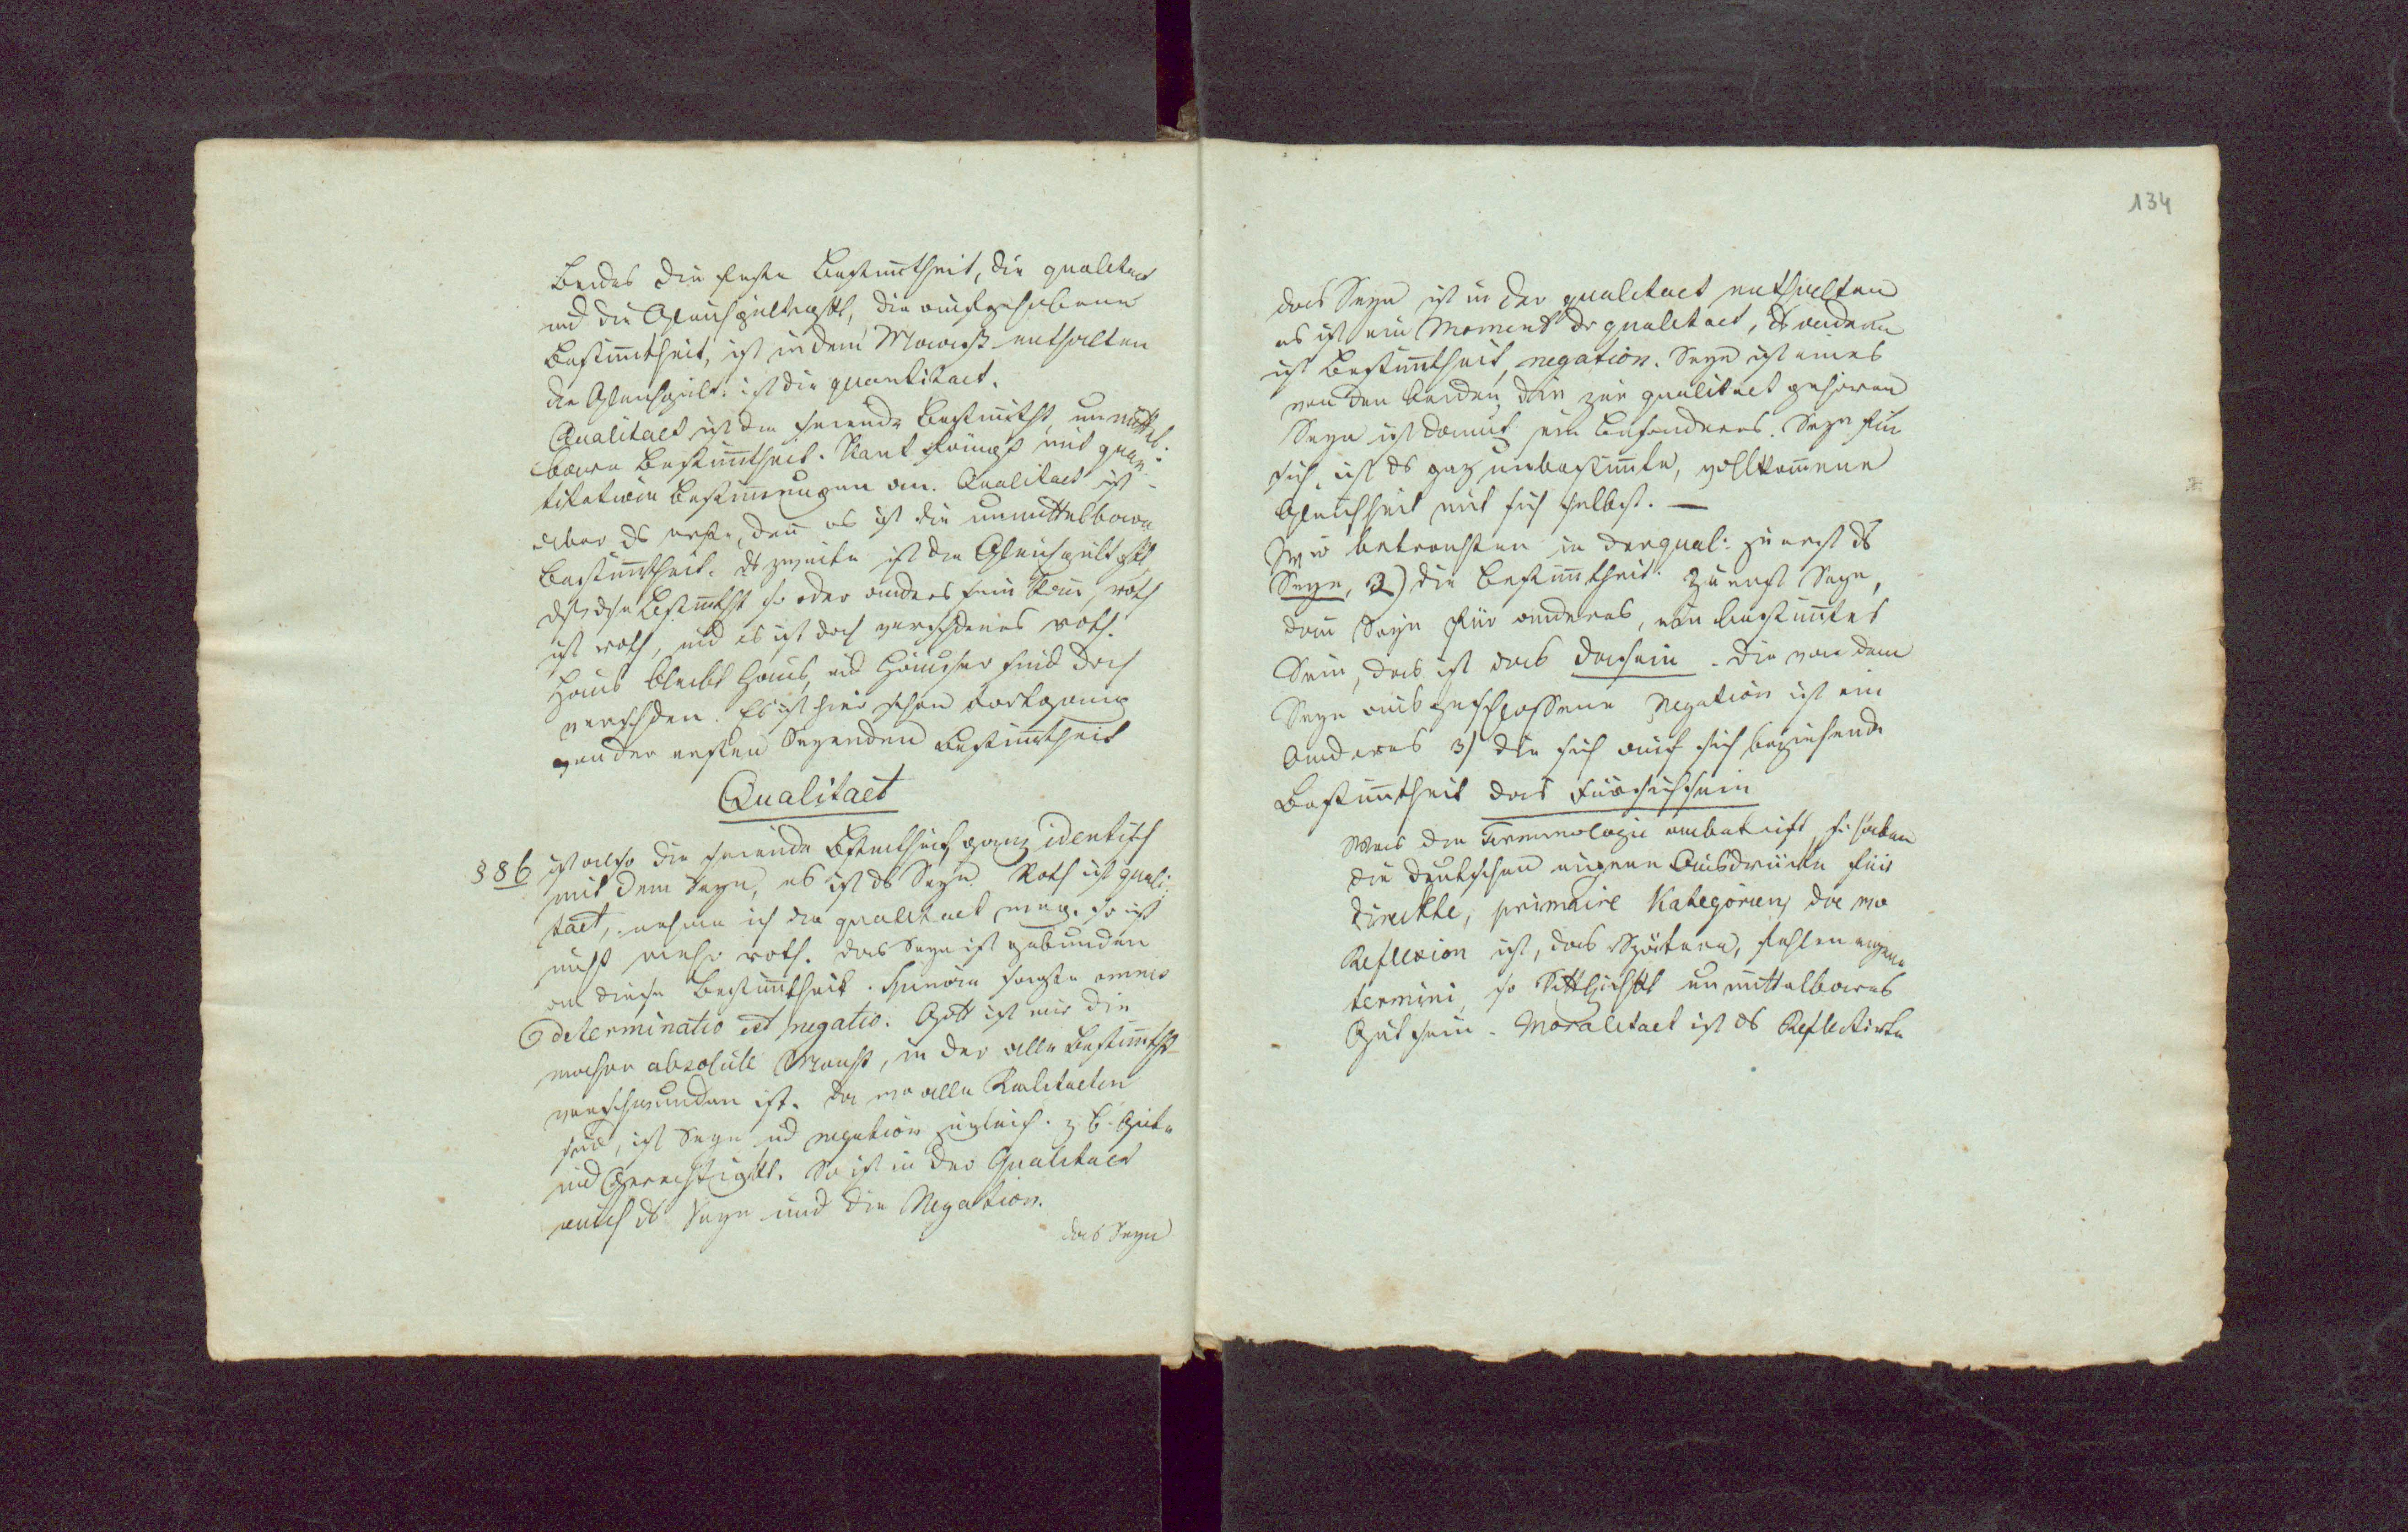 Beides die erste Bestimtheit, die qualitaet
und die Gleichgültigkt, die aufgehobene
Bestimtheit, ist in dem Maaß enthalten
die Gleichgült: ist die quantitaet.
Qualitaet ist die seiende Bestimtht, unmittel:
bare Bestimtheit. Kant fängt mit quan:
titativen Bestimungen an. Qualitaet ist
aber ds erste, den es ist die unmittelbare
Bestimtheit. ds zweite ist die Gleichgültgkt,
dß dse Bestimtht so oder anders sein kan, roth
ist roth, und es ist doch verschdenes roth.
Haus bleibt Haus, und Häuser sind doch
verschden. Es ist hier schon Fortgang
von der ersten Seyenden Bestimtheit
Qualitaet
§ 86 ist also die seiende Bestimtheit ganz identisch
mit dem Seyn, es ist ds Seyn. Roth ist quali:
taet, nehme ich die qualitaet weg, so ist
nicht mehr roth. das Seyn ist gebunden
an diese Bestimtheit. Spinoza sagte omnis
determinatio est negatio. Gott ist nur die
absolute Macht, in der alle Bestimtht
verschwunden ist. da wo alle Realitaeten
sind, ist Seyn und negation zugleich. z B. Güte
und Gerechtigkt. So ist in der Qualitaet
auch ds Seyn und die Negation.
das Seyn
134
das Seyn ist in der qualitaet enthalten
es ist ein Moment dr qualitaet, ds andere
ist Bestimtheit, negation. Seyn ist eines
von den beiden, die zur qualitaet gehören
Seyn ist damit ein besonderes. Seyn für
sich, ist ds ganz unbestimte, vollkomene
Gleichheit mit sich selbst. —
Wir betrachten in der qual: zuerst ds
Seyn, 2) die Bestimtheit. Zuerst Seyn,
dan Seyn für anderes, ein bestimtes
Sein, das ist das Dasein. Die von dem
Seyn ausgeschlossene Negation ist ein
Anderes 3) die sich auf sich beziehende
Bestimtheit das Fürsichsein
Was die Terminologie anbetrift, so haben
die deutschen eigene Ausdrücke für
direckte, primaire Kategorien, da wo
Reflexion ist, das Spätere, fehlen eigene
termini, so Sittlichkt unmittelbares
Gutsein. Moralitaet ist ds Reflektirte